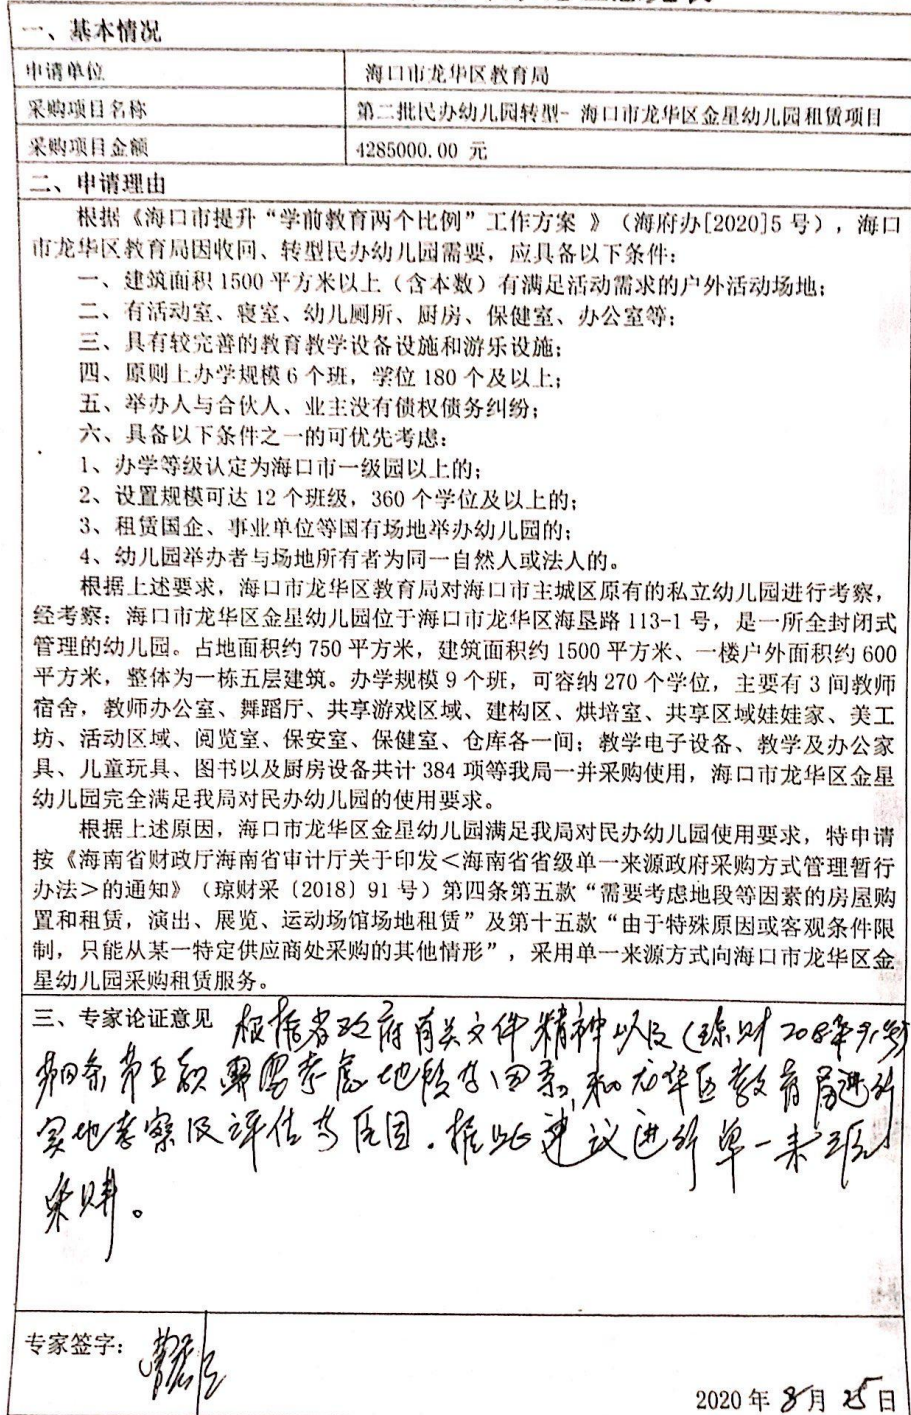 一、基本情况
申请单位 海口市龙华区教育局
采购项目名称 第二批民办幼儿园转型- 海口市龙华区金星幼儿园租赁项目
采购项目金额 4285000.00 元
二、申请理由
根据《海口市提升“学前教育两个比例”工作方案 》（海府办[2020]5 号），海口
市龙华区教育局因收回、转型民办幼儿园需要，应具备以下条件：
一、建筑面积 1500 平方米以上（含本数）有满足活动需求的户外活动场地；
二、有活动室、寝室、幼儿厕所、厨房、保健室、办公室等；
三、具有较完善的教育教学设备设施和游乐设施；
四、原则上办学规模 6 个班，学位 180 个及以上；
五、举办人与合伙人、业主没有债权债务纠纷；
六、具备以下条件之一的可优先考虑：
1、办学等级认定为海口市一级园以上的；
2、设置规模可达 12 个班级，360 个学位及以上的；
3、租赁国企、事业单位等国有场地举办幼儿园的；
4、幼儿园举办者与场地所有者为同一自然人或法人的。
根据上述要求，海口市龙华区教育局对海口市主城区原有的私立幼儿园进行考察，
经考察：海口市龙华区金星幼儿园位于海口市龙华区海垦路 113-1 号，是一所全封闭式
管理的幼儿园。占地面积约 750 平方米，建筑面积约 1500 平方米、一楼户外面积约 600
平方米，整体为一栋五层建筑。办学规模 9 个班，可容纳 270 个学位，主要有 3 间教师
宿舍，教师办公室、舞蹈厅、共享游戏区域、建构区、烘培室、共享区域娃娃家、美工
坊、活动区域、阅览室、保安室、保健室、仓库各一间；教学电子设备、教学及办公家
具、儿童玩具、图书以及厨房设备共计 384 项等我局一并采购使用，海口市龙华区金星
幼儿园完全满足我局对民办幼儿园的使用要求。
根据上述原因，海口市龙华区金星幼儿园满足我局对民办幼儿园使用要求，特申请
按《海南省财政厅海南省审计厅关于印发<海南省省级单一来源政府采购方式管理暂行
办法>的通知》（琼财采〔2018〕91 号）第四条第五款“需要考虑地段等因素的房屋购
置和租赁，演出、展览、运动场馆场地租赁”及第十五款“由于特殊原因或客观条件限
制，只能从某一特定供应商处采购的其他情形”，采用单一来源方式向海口市龙华区金
星幼儿园采购租赁服务。
三、专家论证意见 根据省政府有关文件精神以及（琼财 2018年91号）
第四条第五款 需考虑地段等因素，和龙华区教育局进行
实地考察及评估等原因，据此建议进行单一来源
采购。
专家签字：
2020 年 8月 25日